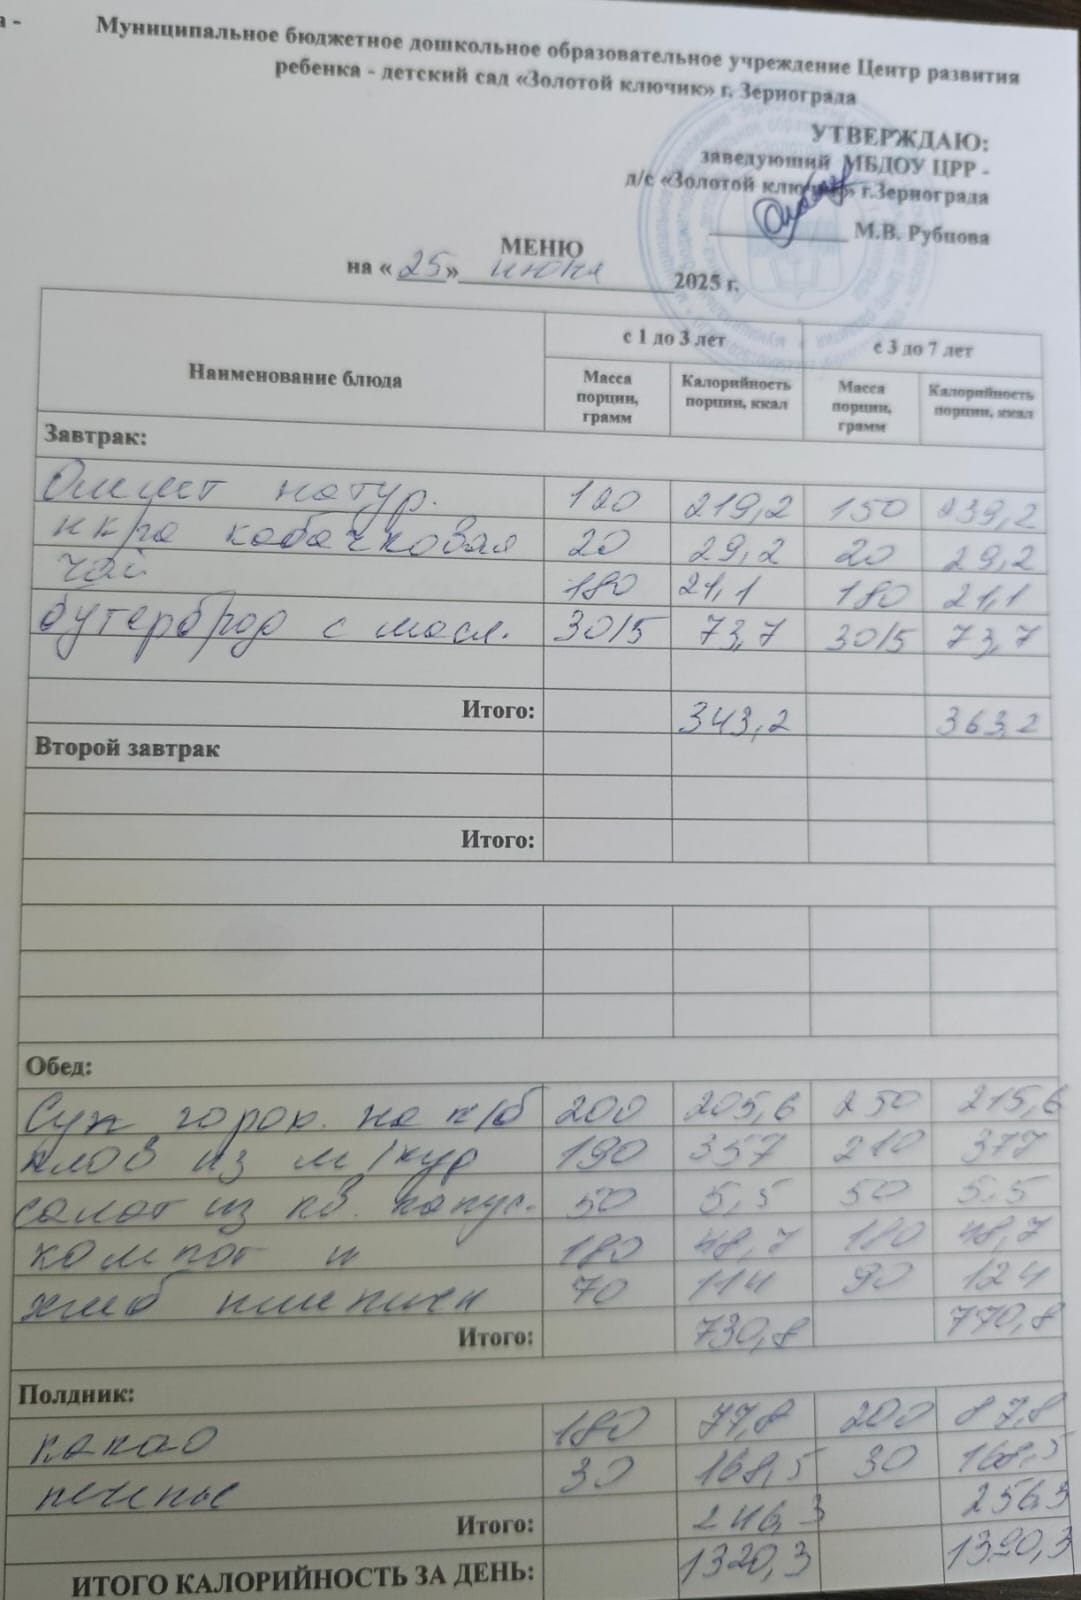 а -
Муниципальное бюджетное дошкольное образовательное учреждение Центр развития
ребенка - детский сад «Золотой ключик» г. Зернограда
УТВЕРЖДАЮ:
заведующий МБДОУ ЦРР -
д/с «Золотой ключик» г.Зернограда
М.В. Рубцова
МЕНЮ
на «25» июня 2025 г.
Наименование блюда с 1 до 3 лет с 3 до 7 лет
Масса порции, грамм Калорийность порции, ккал Масса порции, грамм Калорийность порции, ккал
Завтрак:
Омлет натур. 120 219,2 150 239,2
икра кабачковая 20 29,2 20 29,2
чай 180 21,1 180 21,1
бутерброд с масл. 30/5 73,7 30/5 73,7
Итого: 343,2 363,2
Второй завтрак
Итого:
Обед:
Суп горох. на к/б 200 205,6 250 215,6
плов из м/кур 190 357 210 377
салат из кв. капус. 50 5,5 50 5,5
компот и 180 48,7 180 48,7
хлеб пшеничн 70 114 90 124
Итого: 730,8 770,8
Полдник:
какао 180 77,8 200 87,8
печенье 30 168,5 30 168,5
Итого: 246,3 256,3
ИТОГО КАЛОРИЙНОСТЬ ЗА ДЕНЬ: 1320,3 1390,3